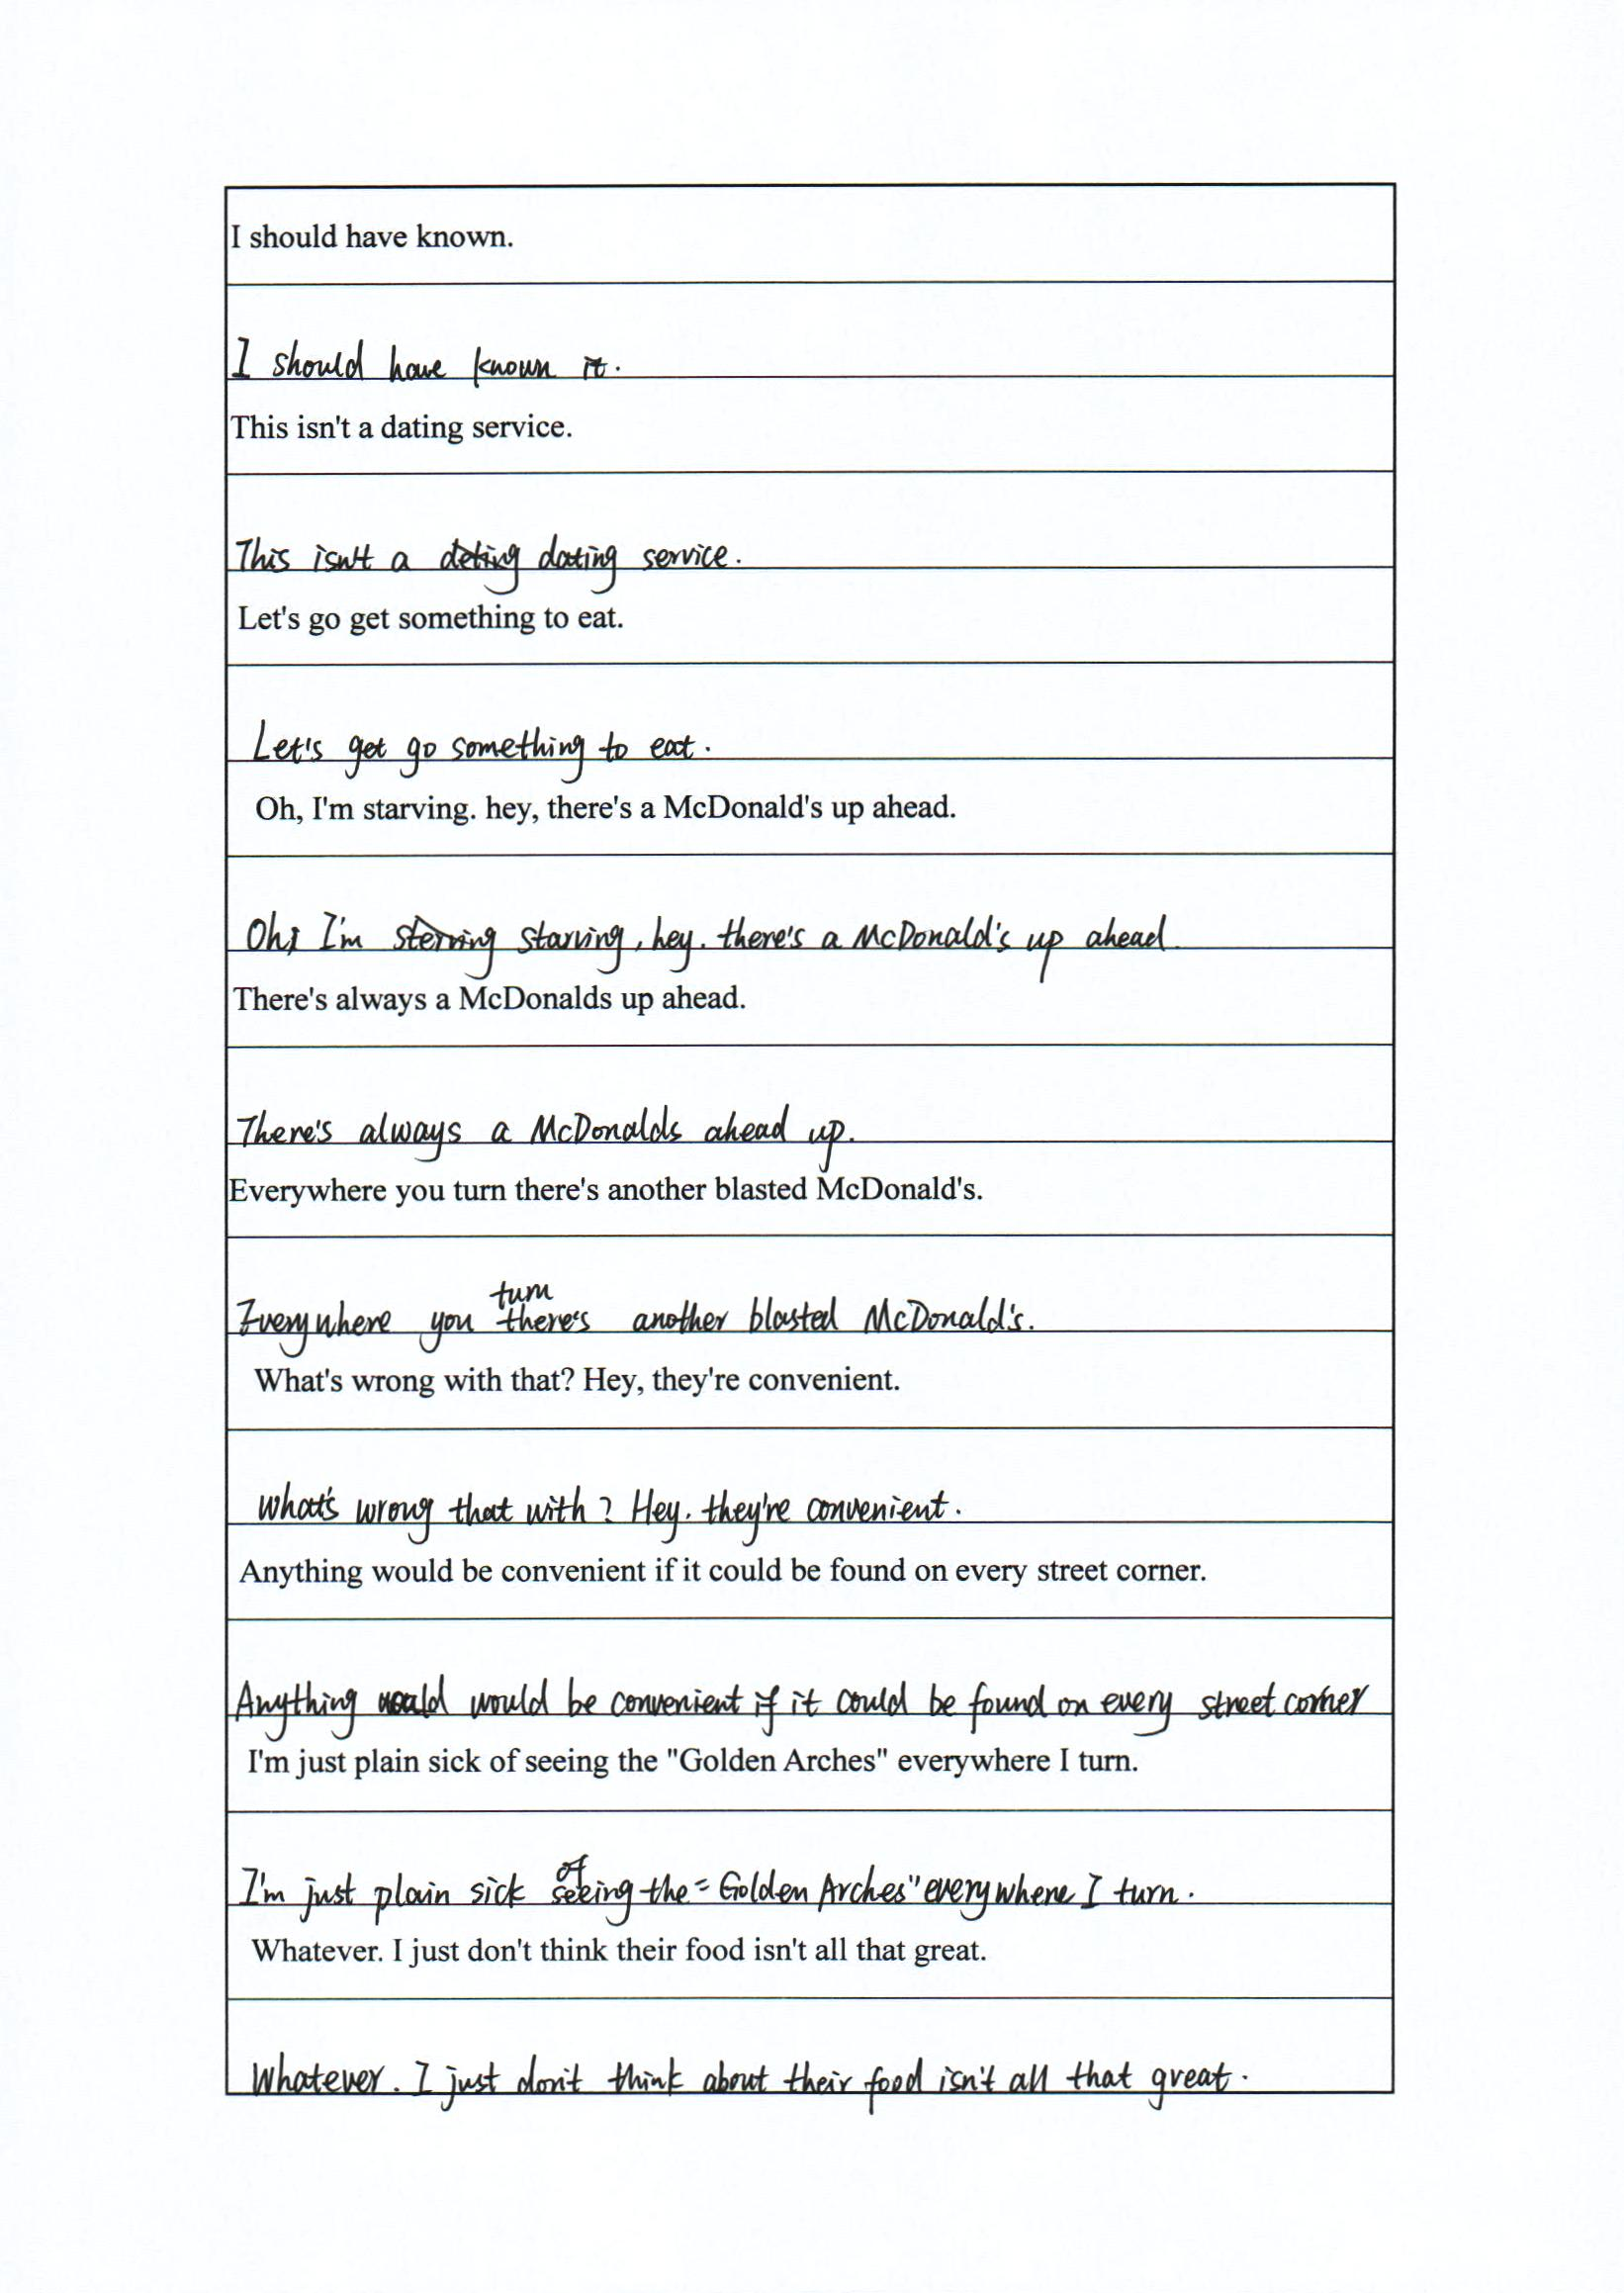 I should have known.
I should have known it.
This isn't a dating service.
This isn't a deting dating service.
Let's go get something to eat.
Let's get go something to eat.
Oh, I'm starving. hey, there's a McDonald's up ahead.
Oh, I'm sterving starving, hey. there's a McDonald's up ahead.
There's always a McDonalds up ahead.
There's always a McDonalds ahead up.
Everywhere you turn there's another blasted McDonald's.
Everywhere you turn there's another blasted McDonald's.
What's wrong with that? Hey, they're convenient.
What's wrong that with? Hey. they're convenient.
Anything would be convenient if it could be found on every street corner.
Anything would be convenient if it could be found on every street corner
I'm just plain sick of seeing the "Golden Arches" everywhere I turn.
I'm just plain sick of seeing the "Golden Arches" everywhere I turn.
Whatever. I just don't think their food isn't all that great.
Whatever. I just don't think about their food isn't all that great.